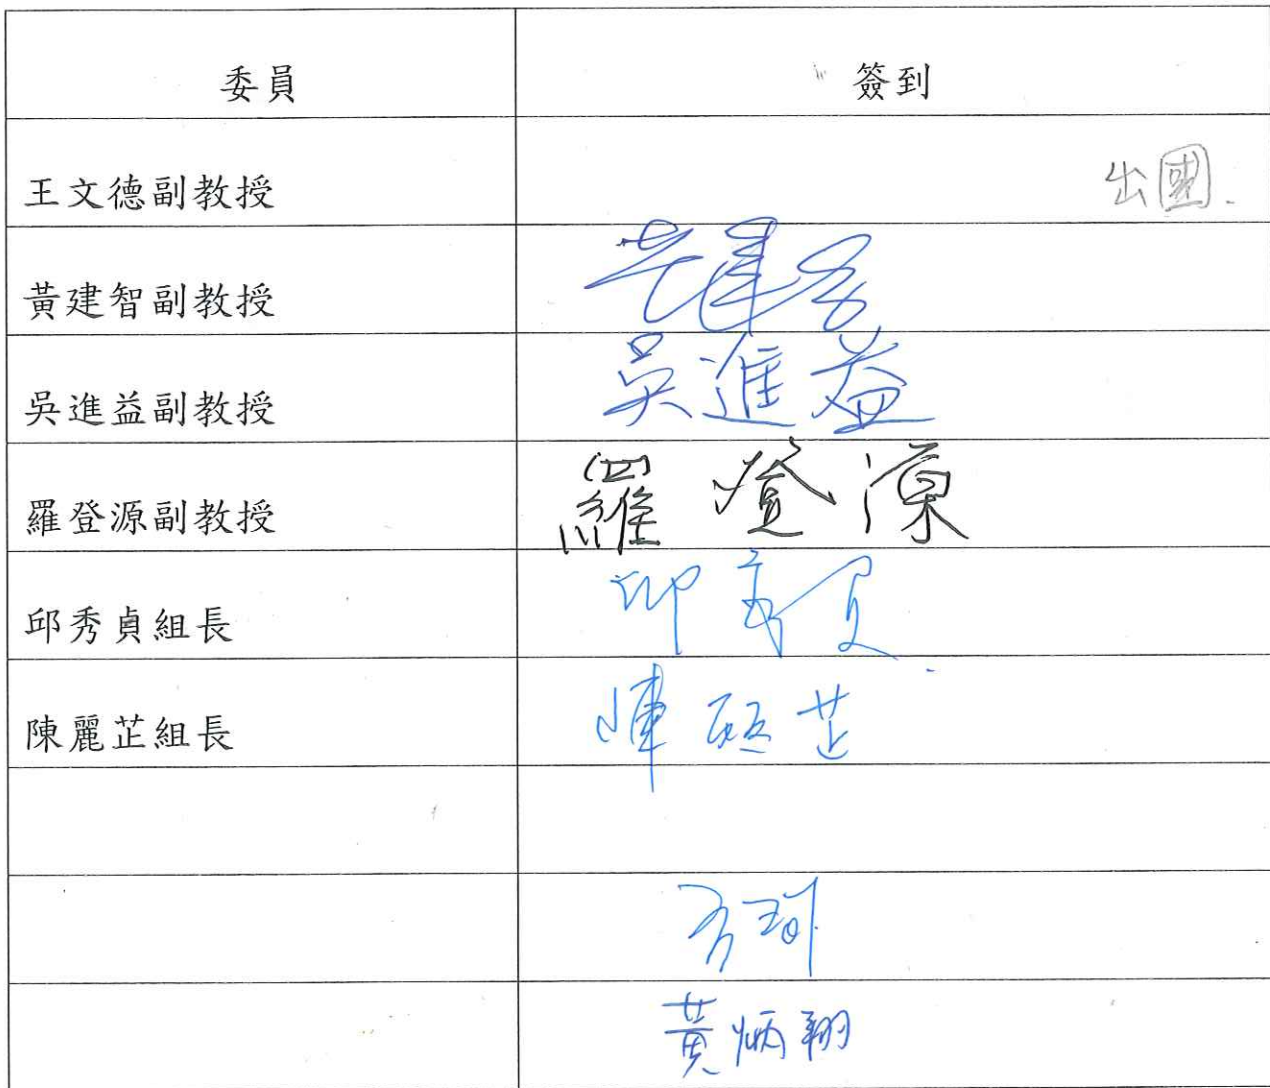 委員 簽到
王文德副教授 出國.
黃建智副教授 黃建智
吳進益副教授 吳進益
羅登源副教授 羅登源
邱秀貞組長 邱秀貞
陳麗芷組長 陳麗芷
黃炳翔